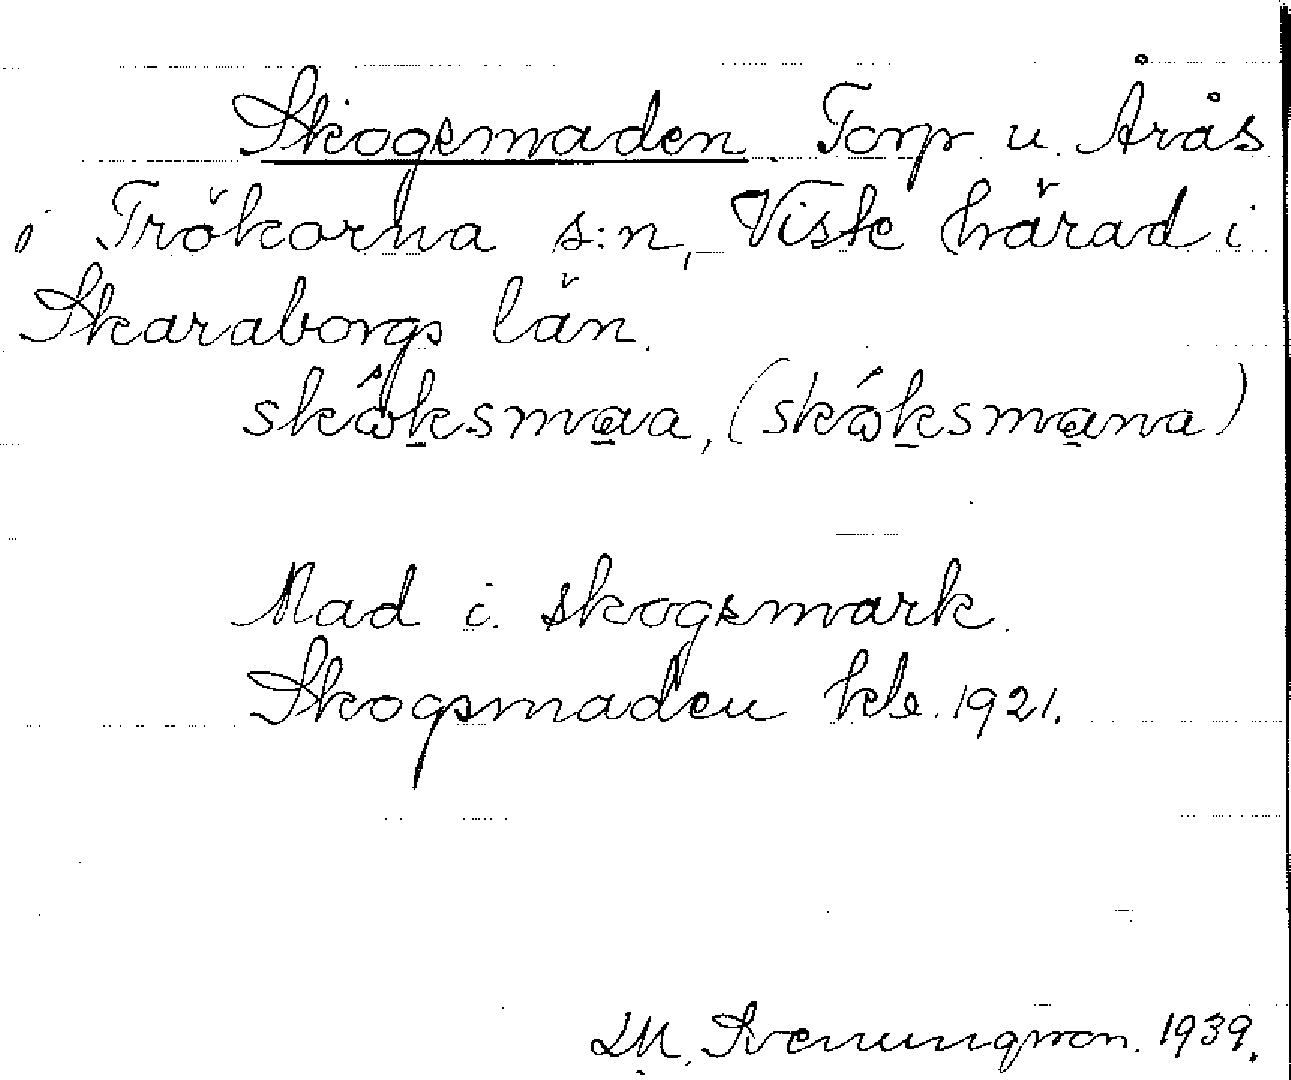 Skogsmaden Torp u. Årås
i Trökörna s:n, Viste härad i
Skaraborgs län.
Mad i skogsmark.
Skogsmaden kle. 1921.
M. Svenungsson. 1939.